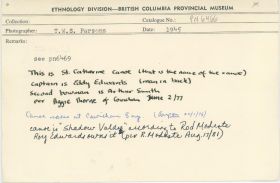 ETHNOLOGY DIVISION—BRITISH COLUMBIA PROVINCIAL MUSEUM
Collection: Catalogue No.: PN6466
Photographer: T.W.S. Parsons Date: 1945
Remarks:
see pn6469
This is St. Catherine Canoe (that is the name of the canoe)
captain is Eddy Edwards (man in back)
Second bowman is Arthur Smith
per Aggie Thorne of Cowichan 2/77
Canoe races at Cowichan Bay
canoe is "Shadow Valley" according to Rod Modeste
Roy Edwards owns it (per R. Modeste Aug. 17/81)